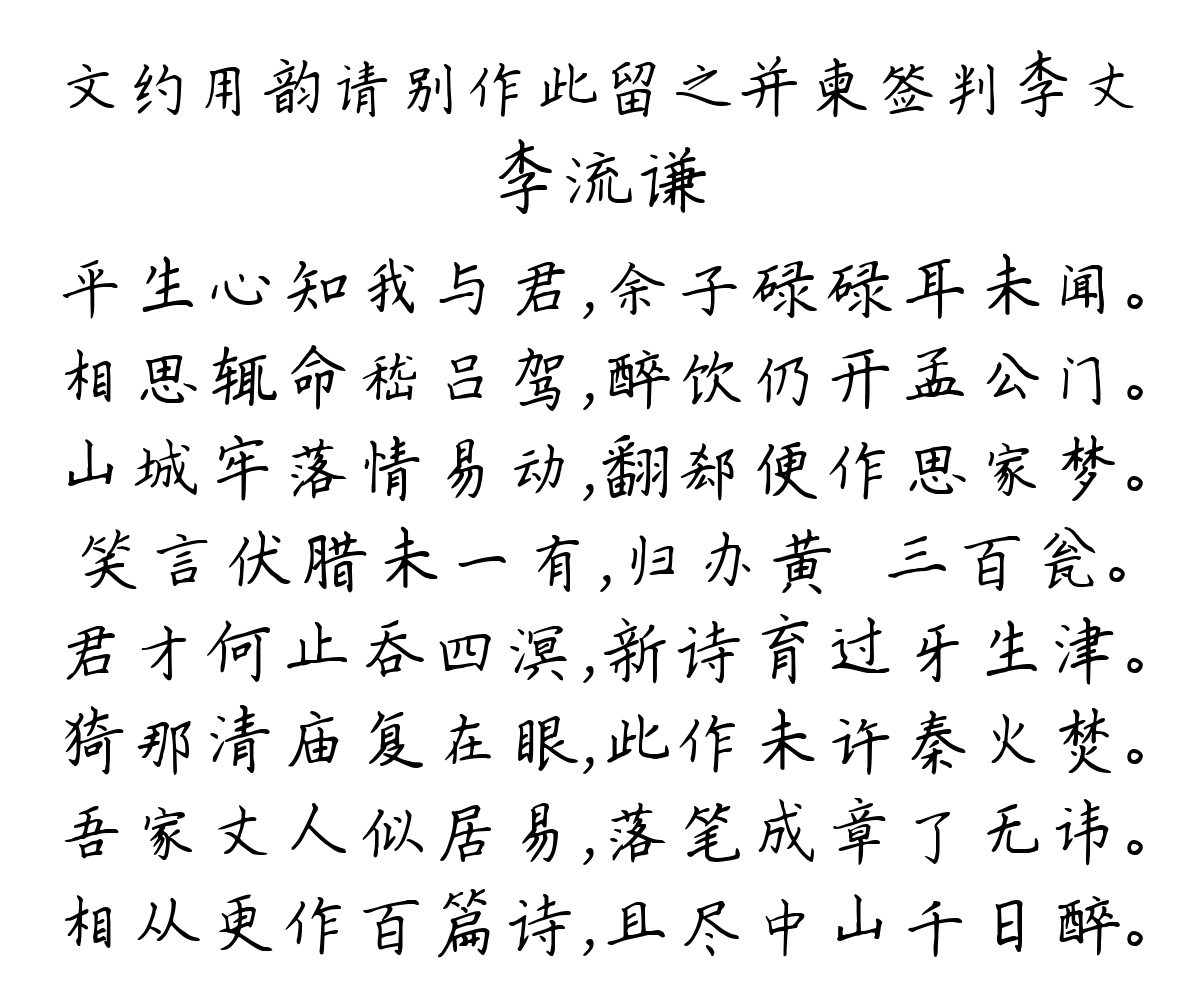 文约用韵请别作此留之并柬签判李丈
李流谦
平生心知我与君,余子碌碌耳未闻。
相思辄命嵇吕驾,醉饮仍开孟公门。
山城牢落情易动,翻郄便作思家梦。
笑言伏腊未一有,归办黄 三百瓮。
君才何止吞四溟,新诗育过牙生津。
猗那清庙复在眼,此作未许秦火焚。
吾家丈人似居易,落笔成章了无讳。
相从更作百篇诗,且尽中山千日醉。